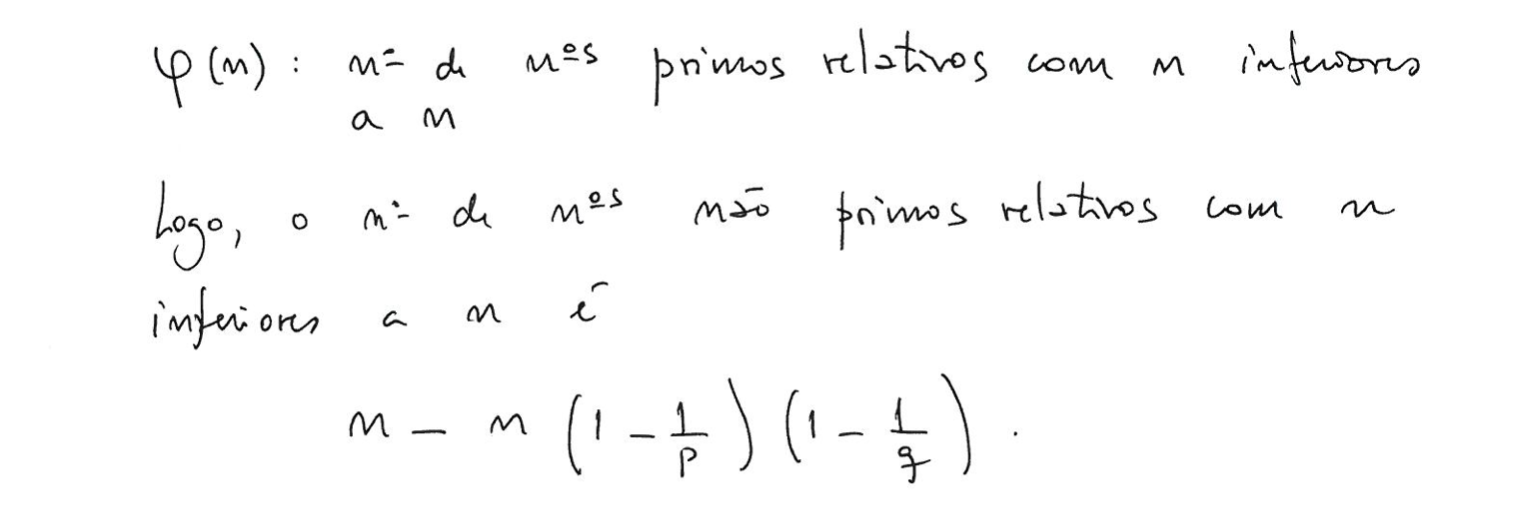 φ(n) : nº de nºs primos relativos com n inferiores
a n
Logo, o nº de nºs não primos relativos com n
inferiores a n é
n - n (1 - 1/p) (1 - 1/q) .